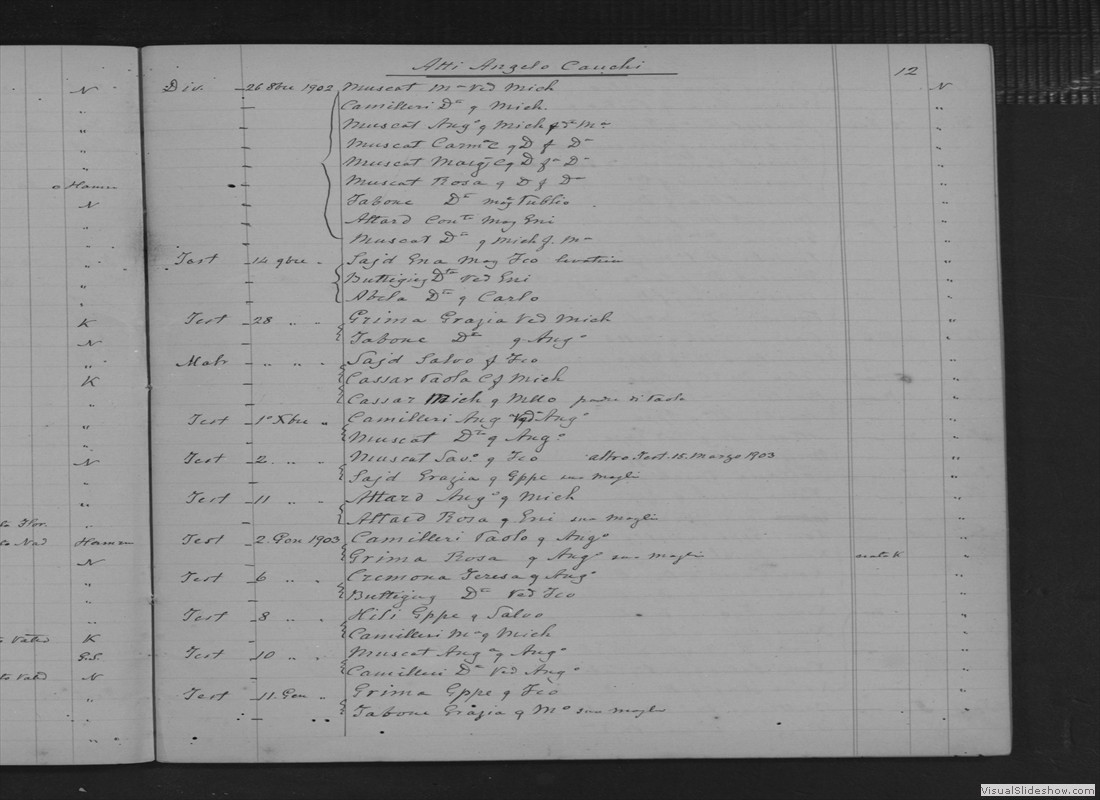 Atti Angelo Cauchi
12
Div. 26 8bre 1902 Muscat Ma Ved Mich N
Camilleri Da q Mich. "
Muscat Ango q Mich f Da Ma "
Muscat Carmc q D f Da "
Muscat Marg C q D f Da "
o Hamrun Muscat Rosa q D f Da "
N Tabone Da mog Publio "
Attard Conta Mog Eni "
Muscat Da q Mich f. Ma "
Test 14 9bre " Sajd Ena Mog Fco levatrice "
Buttigieg Da Ved Eni "
Abela Da q Carlo "
K Test 28 " " Grima Grazia Ved Mich "
N Tabone Da q Ango "
Matr " " " Sajd Salvo f Fco "
K Cassar Paola C f Mich "
Cassar Mich q Mllo padre di Paola "
Test 1o Xbre " Camilleri Ang Ango "
Muscat Da q Ango "
N Test 2 " " Muscat Savo q Fco altro Test. 15 Marzo 1903 "
Sajd Grazia q Gppe sua moglie "
Test 11 " " Attard Ango q Mich "
Flor. Attard Rosa q Eni sua moglie "
Nad Hamrun Test 2 Gen 1903 Camilleri Paolo q Ango "
N Grima Rosa q Ango sua moglie "
Test 6 " " Cremona Teresa q Ango "
Buttigieg Da Ved Fco "
Test 8 " " Hili Gppe q Salvo "
K Camilleri Ma q Mich "
G.S. Test 10 " " Muscat Anga q Ango "
N Camilleri Da Ved Ango "
Test 11 Gen " Grima Gppe q Fco "
Tabone Grazia q Mo sua moglie "
VisualSlideshow.com